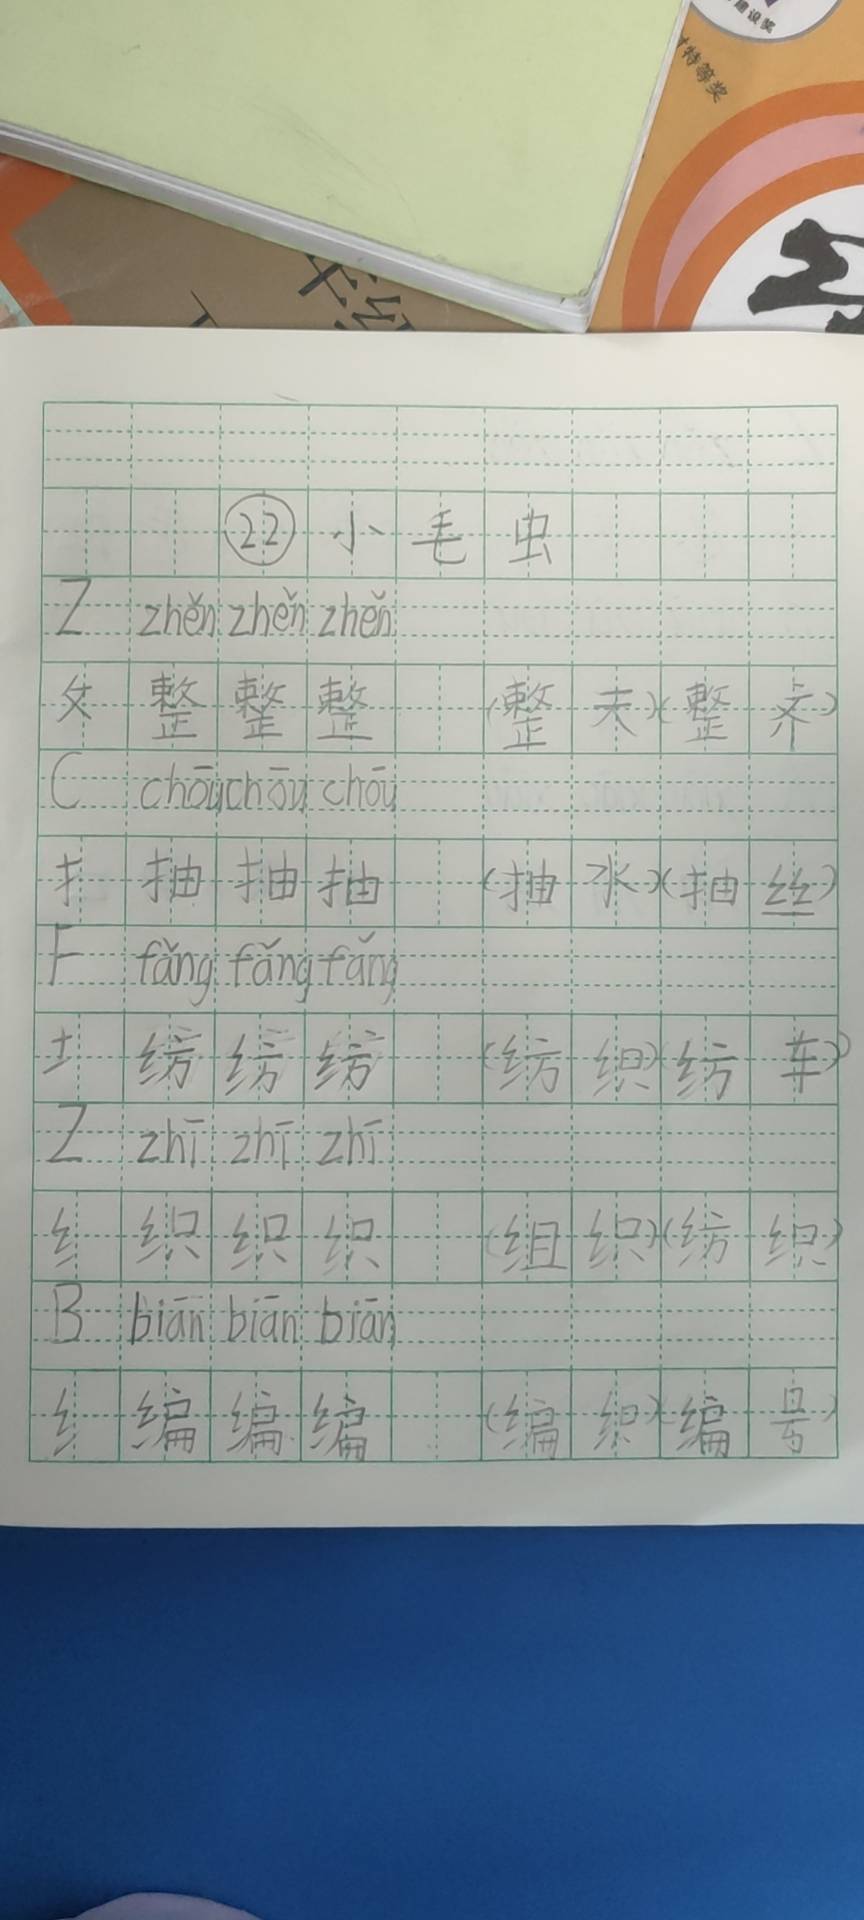 建设奖
特等奖
22 小毛虫
Z zhěn zhěn zhěn
攵 整 整 整 (整 夫)(整 齐)
C chōu chōu chōu
扌 抽 抽 抽 (抽 水)(抽 丝)
F fǎng fǎng fǎng
纺 纺 纺 (纺 织)(纺 车)
Z zhī zhī zhī
纟 织 织 织 (组 织)(纺 织)
B biān biān biān
纟 编 编 编 (编 织)(编 号)